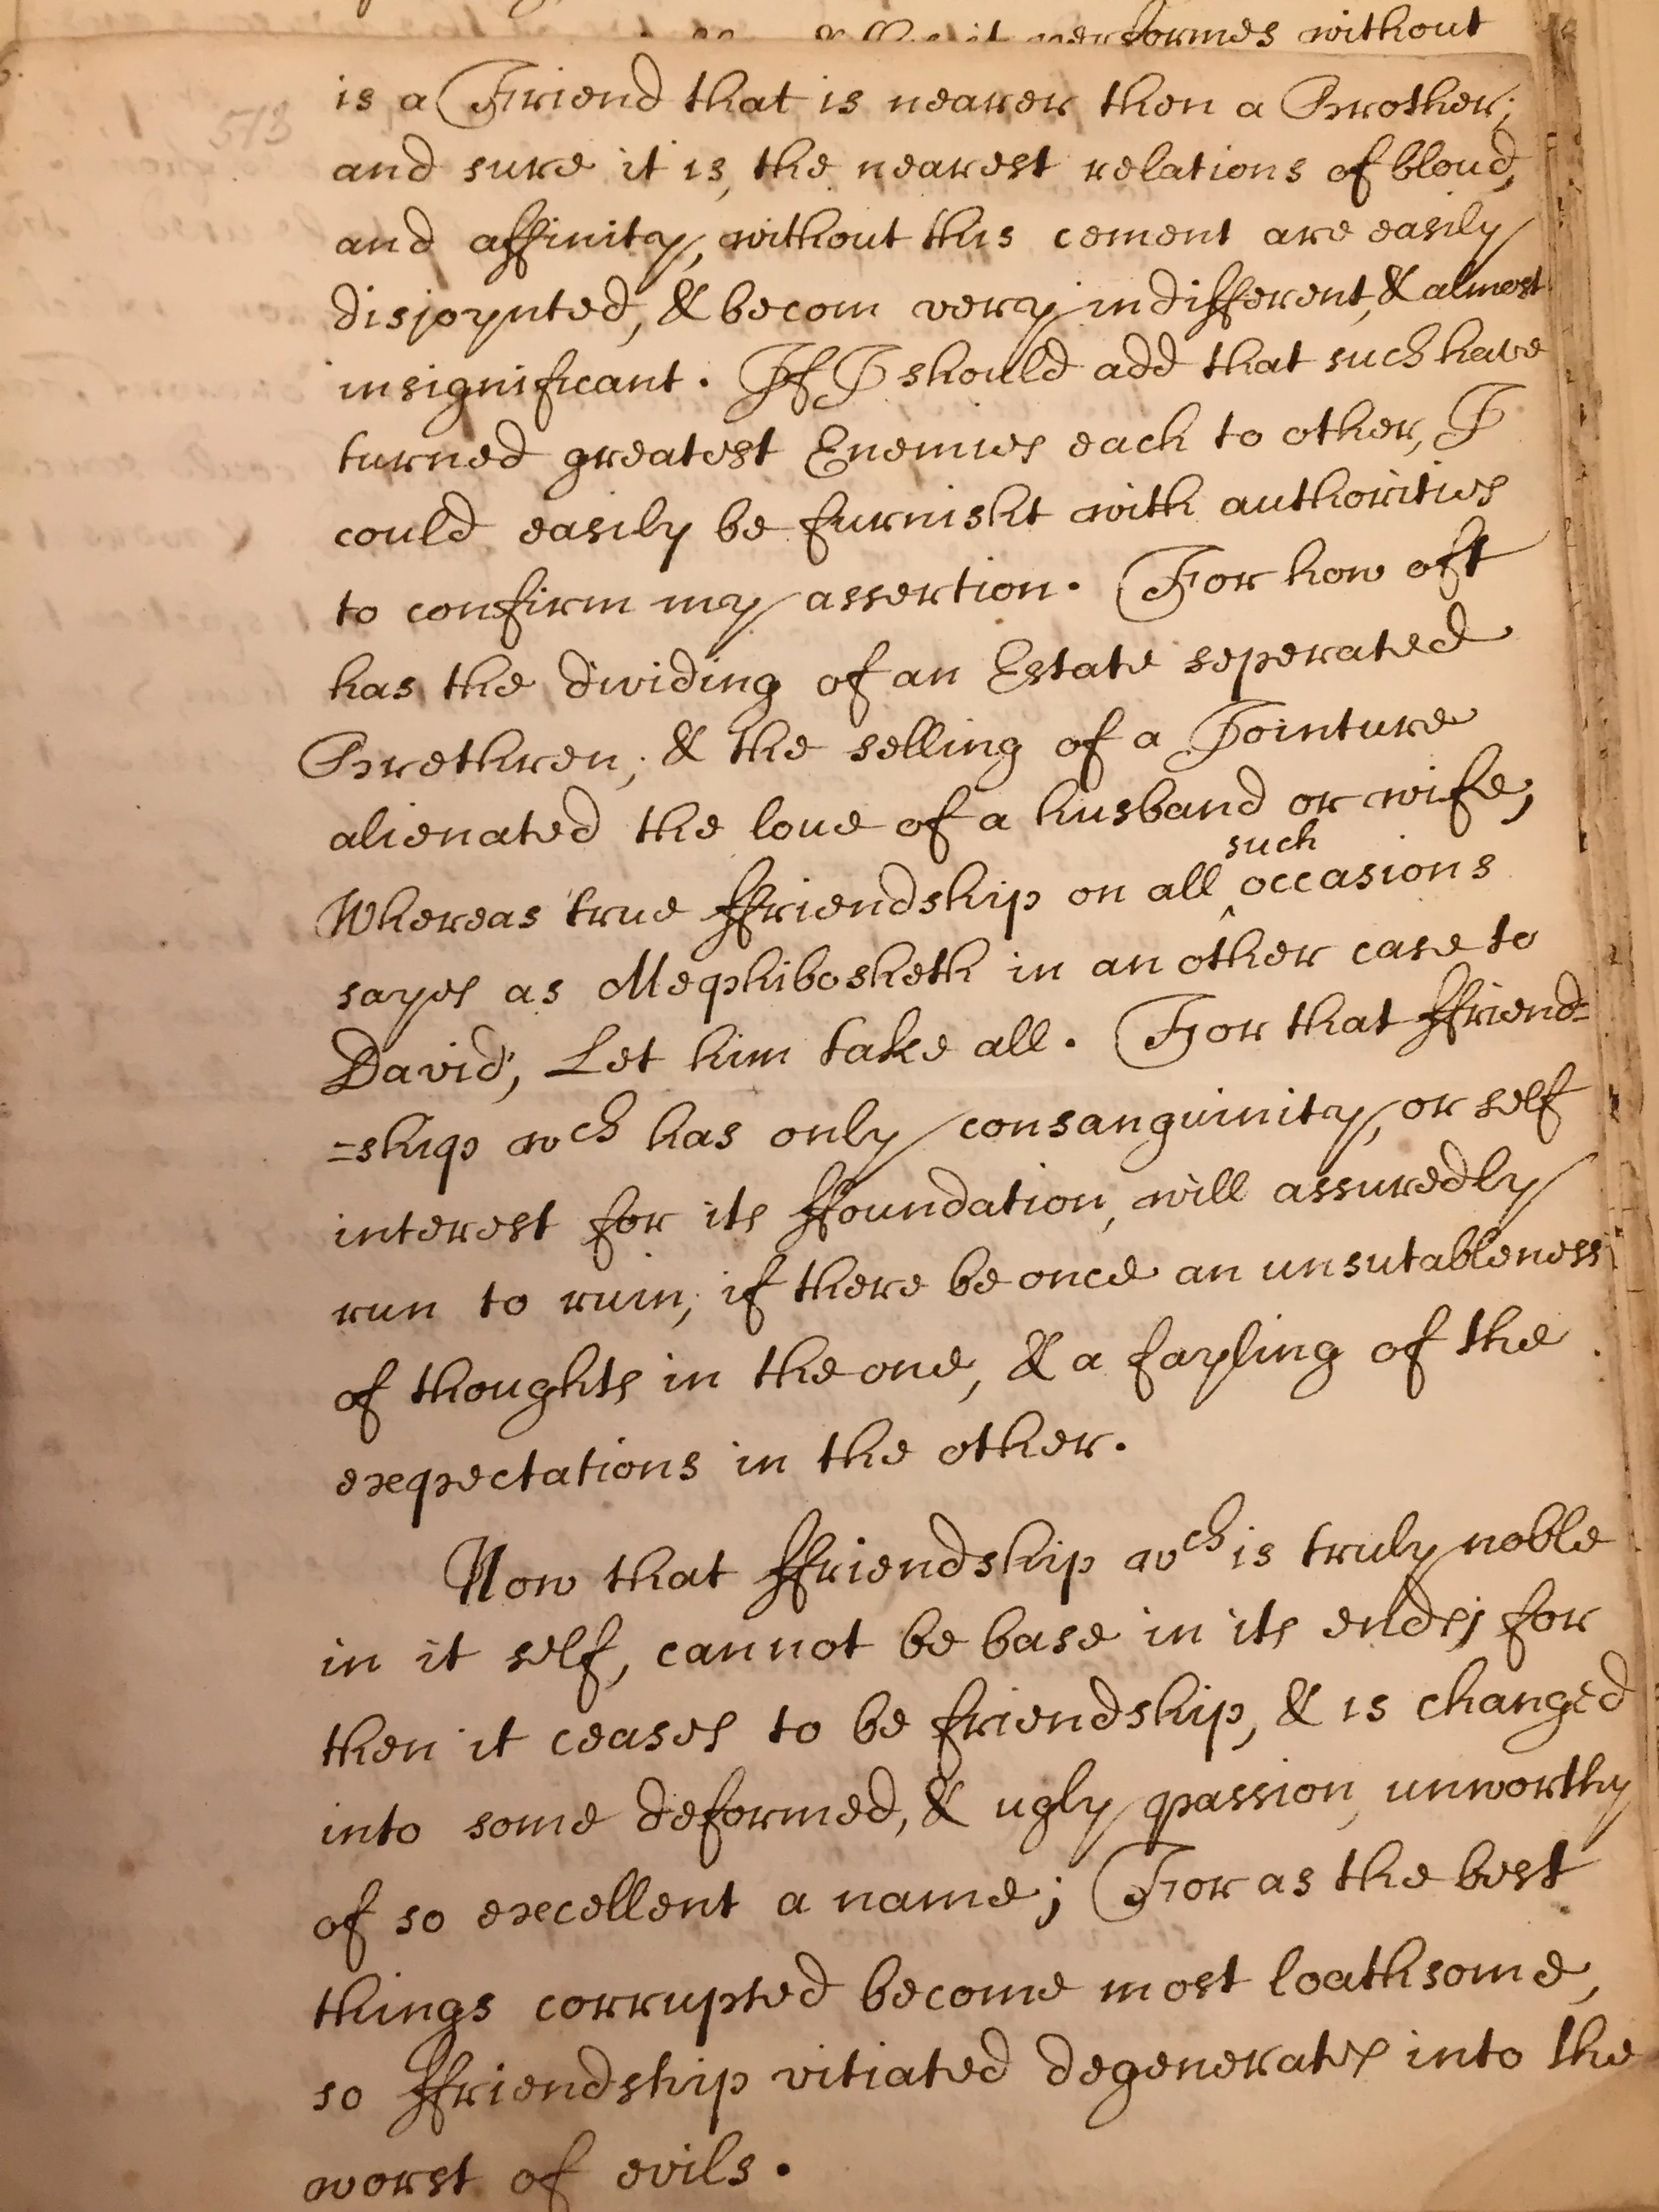 it performes without
513
is a Friend that is nearer then a Brother;
and sure it is, the nearest relations of bloud,
and affinity, without this cement are easily
disjoynted, & becom very indifferent, & almost
insignificant. If I should add that such have
turned greatest Enemies each to other, I
could easily be furnisht with authorities
to confirm my assertion. For how oft
has the dividing of an Estate seperated
Brethren; & the selling of a Jointure
alienated the love of a husband or wife;
such
Whereas true ffriendship on all ^ occasions
sayes as Mephibosheth in an other case to
David, Let him take all. For that ffriend=
=ship wch has only consanguinity, or self
interest for its ffoundation, will assuredly
run to ruin, if there be once an unsutableness
of thoughts in the one, & a fayling of the
expectations in the other.
Now that ffriendship wch is truly noble
in it self, cannot be base in its ends; for
then it ceases to be friendship, & is changed
into some deformed, & ugly passion, unworthy
of so excellent a name; For as the best
things corrupted become most loathsome,
so ffriendship vitiated degenerates into the
worst of evils.